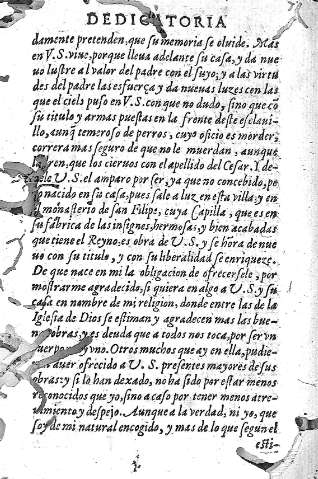 DEDICATORIA
damente pretenden, que su memoria se oluide. Mas
en V.S. viue, porque lleua adelante su casa, y da nue
uo lustre al valor del padre con el suyo, y a las virtu
des del padre las esfuerça, y da nueuas luzes con las
que el cielo puso en V.S. con que no dudo, sino que cō
su titulo y armas puestas en la frente deste esclaui-
llo, aunq̃ temeroso de perros, cuyo oficio es morder,
correra mas seguro de que no le muerdan, aunque
ren, que los cieruos con el apellido del Cesar. Y de-
V.S. el amparo por ser, ya que no concebido, pe
nacido en su casa, pues sale a luz en esta villa, y en
monasterio de san Filipe, cuya Capilla, que es en
su fabrica de las insignes, hermosas, y bien acabadas
que tiene el Reyno, es obra de V.S. y se hora de nue
uo con su titulo, y con su liberalidad se enriqueze.
De que nace en mi la obligacion de ofrecersele, por
mostrarme agradecido, si quiera en algo a V.S. y su
casa en nombre de mi religion, donde entre las de la
Iglesia de Dios se estiman y agradecen mas las bue-
obras, y es deuda que a todos nos toca, por ser vn
cuerpo vno. Otros muchos que ay en ella, pudie-
auer ofrecido a V.S. presentes mayores de sus
obras: y si lo han dexado, no ha sido por estar menos
reconocidos que yo, sino acaso por tener menos atre-
uimiento y despejo. Aunque a la verdad, ni yo, que
soy de mi natural encogido, y mas de lo que segun el
esti-